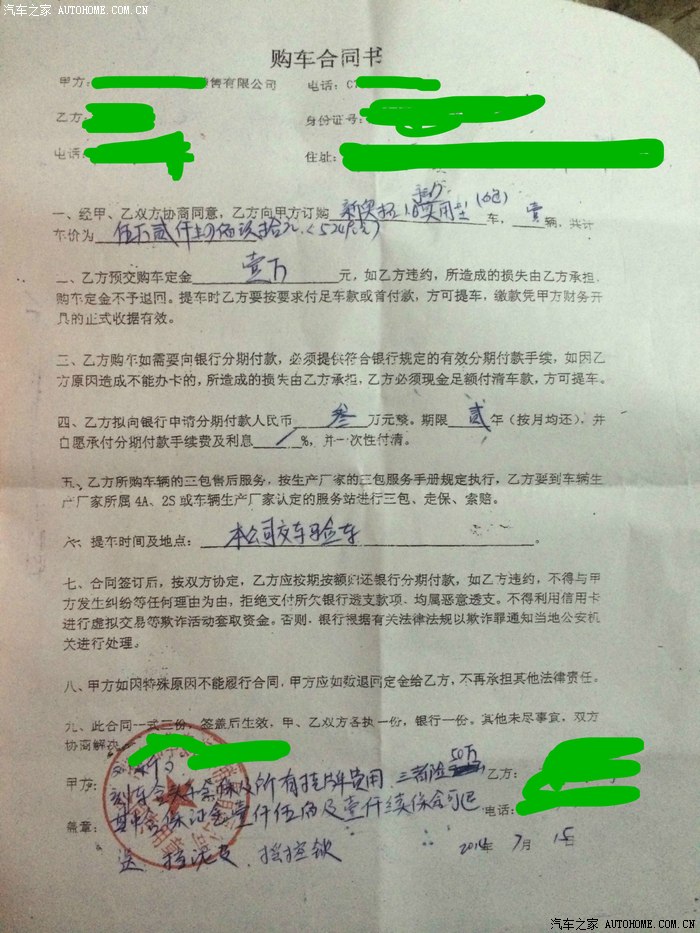 汽车之家 AUTOHOME.COM.CN
购车合同书
甲方： 售有限公司 电话：
乙方： 身份证号：
电话： 住址：
一、经甲、乙双方协商同意，乙方向甲方订购 新奥拓1.0实用型 (白色) 车，壹 辆，共计
车价为 伍万贰仟
二、乙方预交购车定金 壹万 元，如乙方违约，所造成的损失由乙方承担，
购车定金不予退回。提车时乙方要按要求付足车款或首付款，方可提车，缴款凭甲方财务开
具的正式收据有效。
三、乙方购车如需要向银行分期付款，必须提供符合银行规定的有效分期付款手续，如因乙
方原因造成不能办卡的，所造成的损失由乙方承担，乙方必须现金足额付清车款，方可提车。
四、乙方拟向银行申请分期付款人民币 叁 万元整。期限 贰 年（按月均还），并
自愿承付分期付款手续费及利息 / %，并一次性付清。
五、乙方所购车辆的三包售后服务，按生产厂家的三包服务手册规定执行，乙方要到车辆生
产厂家所属 4A、2S 或车辆生产厂家认定的服务站进行三包、走保、索赔。
六、提车时间及地点： 本公司交车验车 。
七、合同签订后，按双方协定，乙方应按期按额归还银行分期付款，如乙方违约，不得与甲
方发生纠纷等任何理由为由，拒绝支付所欠银行透支款项、均属恶意透支。不得利用信用卡
进行虚拟交易等欺诈活动套取资金。否则，银行根据有关法律法规以欺诈罪通知当地公安机
关进行处理。
八、甲方如因特殊原因不能履行合同，甲方应如数退回定金给乙方，不再承担其他法律责任。
九、此合同一式三份，签盖后生效，甲、乙双方各执一份，银行一份。其他未尽事宜，双方
协商解决。
甲方： 乙方：
及所有挂牌费用 三者险 50万
电话：
盖章： 其中含保证金壹仟伍佰及壹仟续保金可退
送 挡泥皮 排挡锁
2014年 7月 15日
汽车之家 AUTOHOME.COM.CN